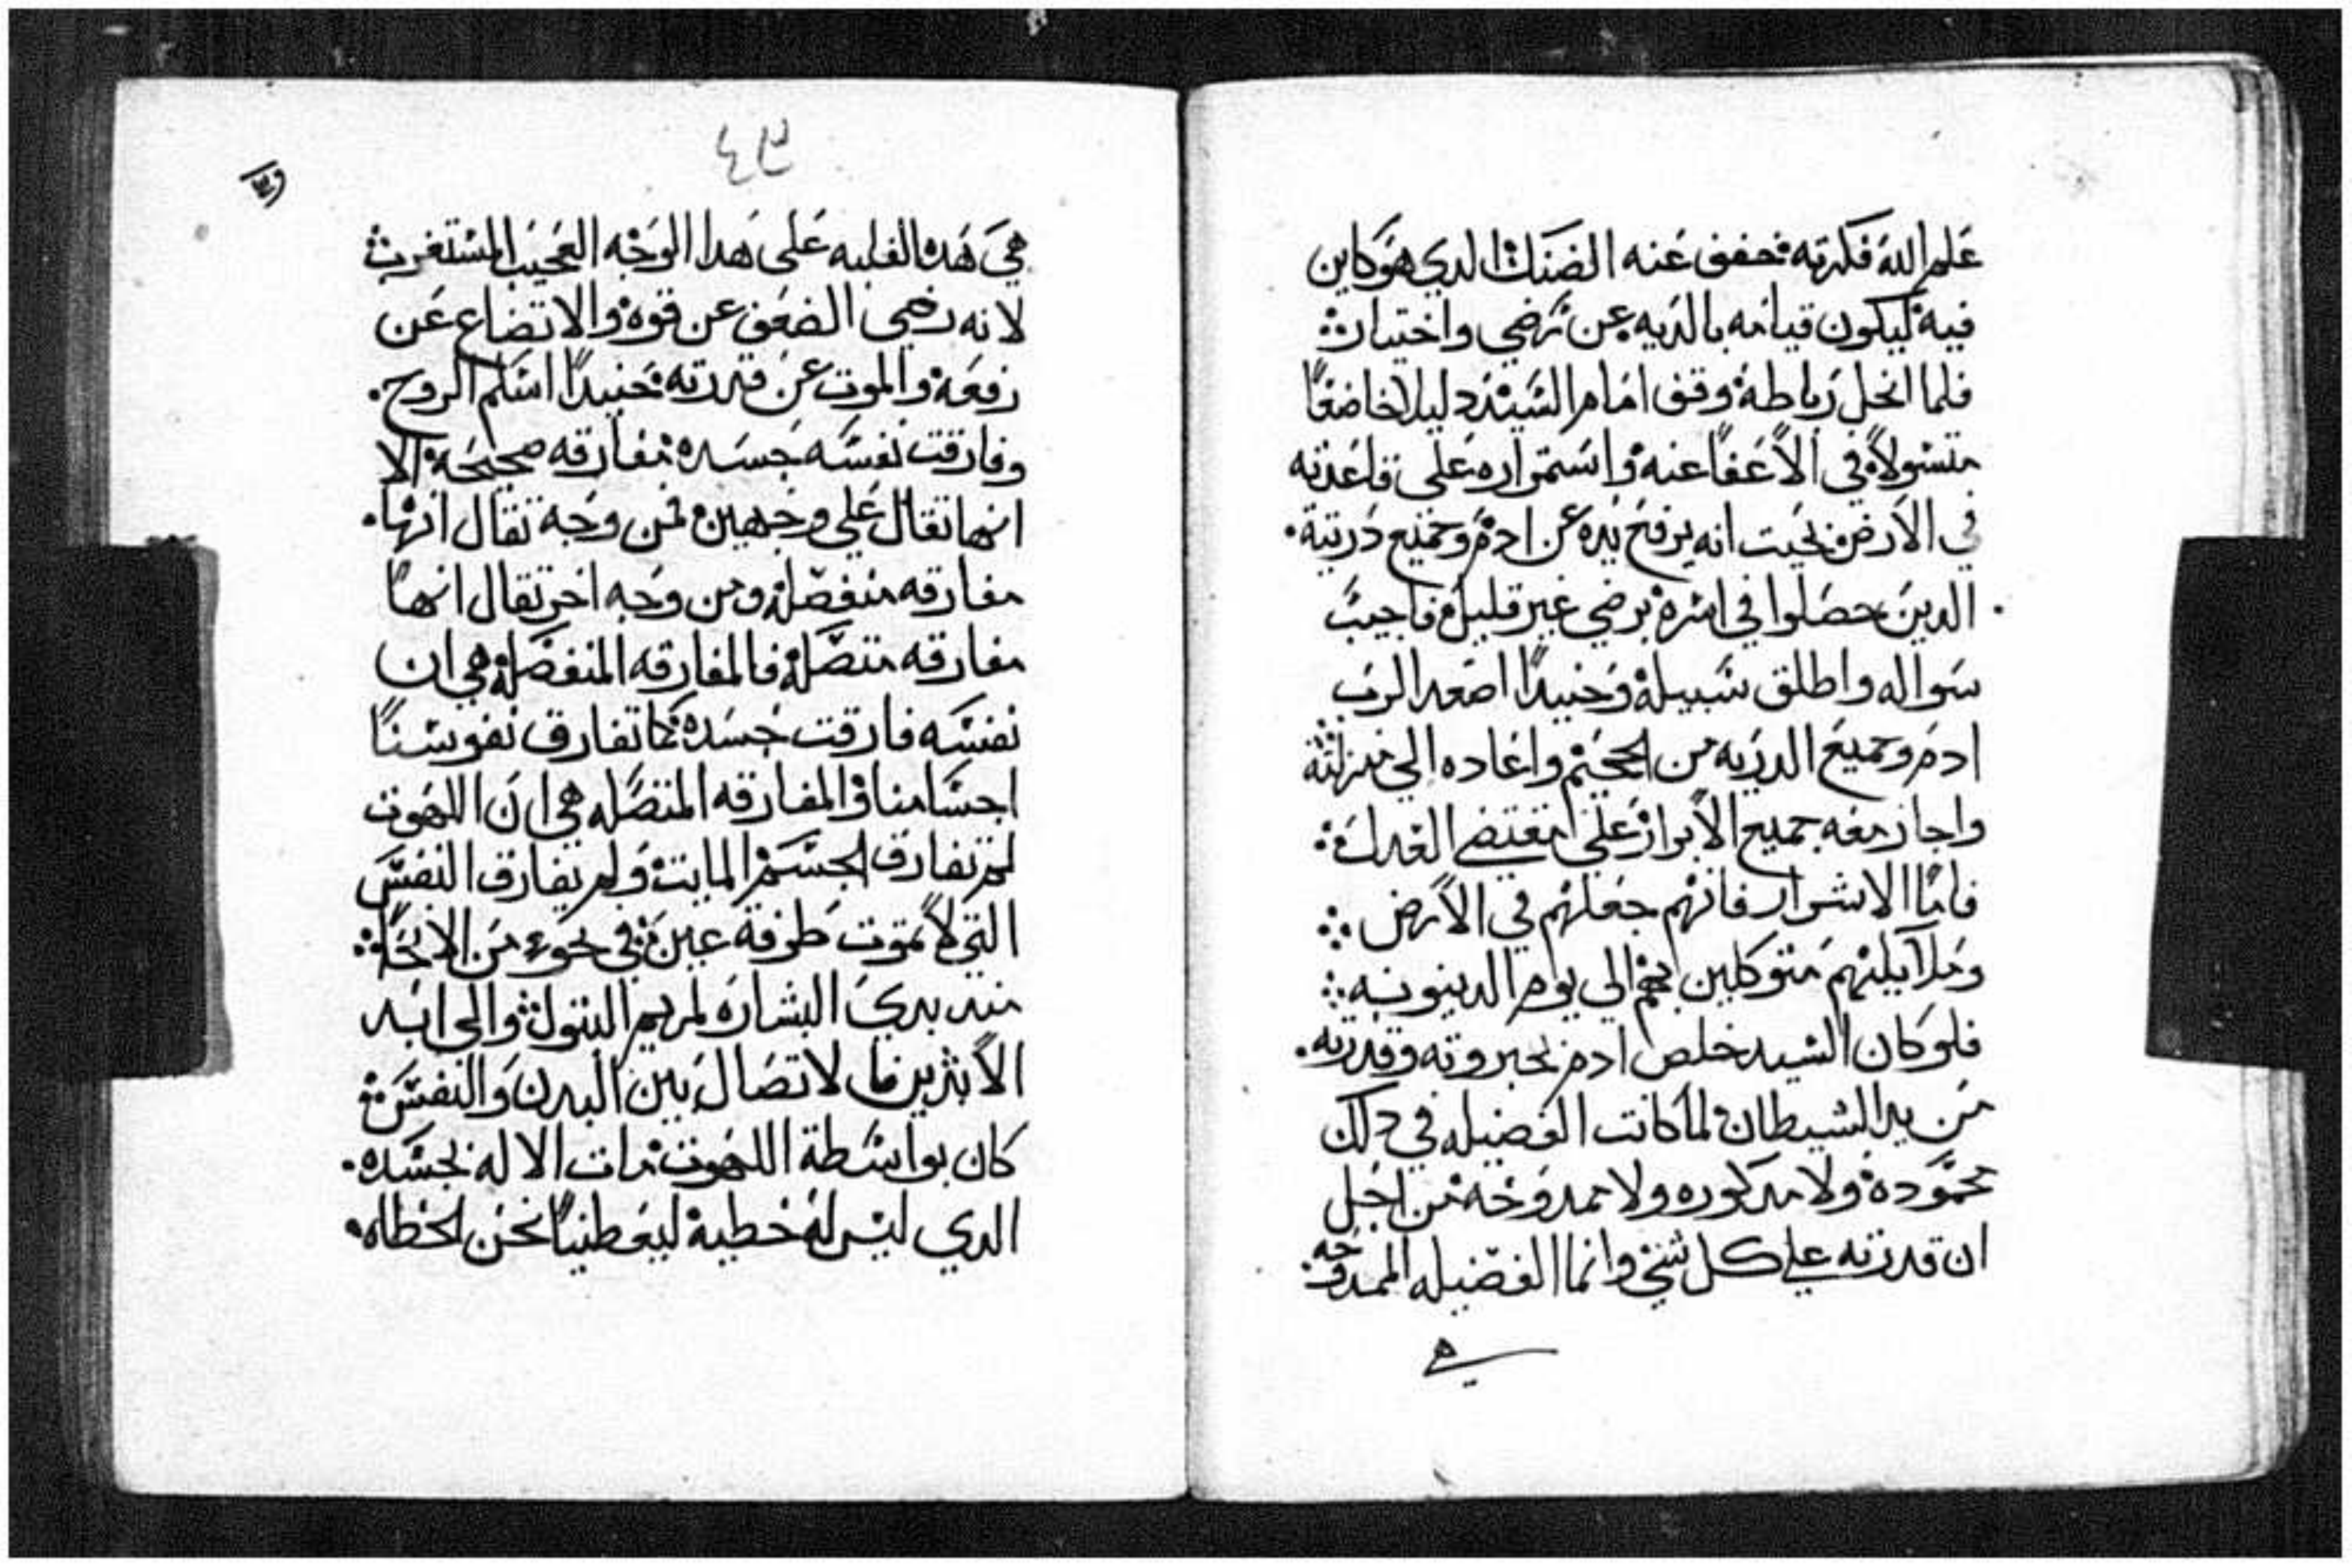 علم الله فكرته فخفف عنه الضنك الدي هو كاين
فيه ليكون قيامه بالديه عن رضي واختيار
فلما انحل رباطه وقف امام السيد دليلا خاضعا
متسولا في الاعفا عنه واستمراره على قاعدته
في الارض بحيت انه يرفع يده عن ادم وجميع دريته
الدين حصلوا في اسره برضي غير قليل فاجيب
سواله واطلق سبيله وحنيدا اصعد الرب
ادم وجميع الدريه من الجحيم واعاده الي منزلته
واجاز معه جميع الابرار على مقتضي العدل
فاما الاشرار فانهم جعلهم في الارض
وملايكتهم متوكلين بهم الي يوم الدينونه
فلو كان السيد خلص ادم بجبروته وقدرته
من يد الشيطان لما كانت الفضيله في دلك
محموده ولا مدكوره ولا ممدوحه من اجل
ان قدرته علي كل شي وانما الفضيله الممدوحه
هي
٤٣
هي هده الغلبه على هدا الوجه العجيب المستغرب
لانه رضي الضعف عن قوه والاتضاع عن
رفعه والموت عن قدرته حنيدا اسلم الروح
وفارقت نفسه جسده مفارقه صحيحه الا
انها تقال علي وجهين فمن وجه تقال انها
مفارقه منفصله ومن وجه اخر تقال انها
مفارقه متصله فالمفارقه المنفصله هي ان
نفسه فارقت جسده كما تفارق نفوسنا
اجسامنا والمفارقه المتصله هي ان اللاهوت
لم تفارق الجسم المايت ولم يفارق النفس
التي لا تموت طرفة عين في نحوء من الانحا
مند بدي البشاره لمريم البتول والي ابد
الابدين فالاتصال بين البدن والنفس
كان بواسطة اللاهوت مات الاله بجسده
الدي ليس له خطيه ليعطينا نحن الخطاه